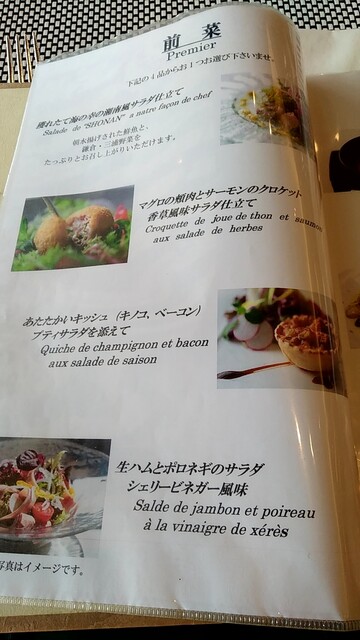 前 菜
Premier
下記の4品からお1つお選び下さいませ。
穫れたて海の幸の湘南風サラダ仕立て
Salade de "SHONAN" a natre façon de chef
朝水揚げされた鮮魚と、
鎌倉・三浦野菜を
たっぷりとお召し上がりいただけます。
マグロの頬肉とサーモンのクロケット
香草風味サラダ仕立て
Croquette de joue de thon et saumon
aux salade de herbes
あたたかいキッシュ (キノコ、ベーコン)
プティサラダを添えて
Quiche de champignon et bacon
aux salade de saison
生ハムとポロネギのサラダ
シェリービネガー風味
Salde de jambon et poireau
à la vinaigre de xérès
写真はイメージです。